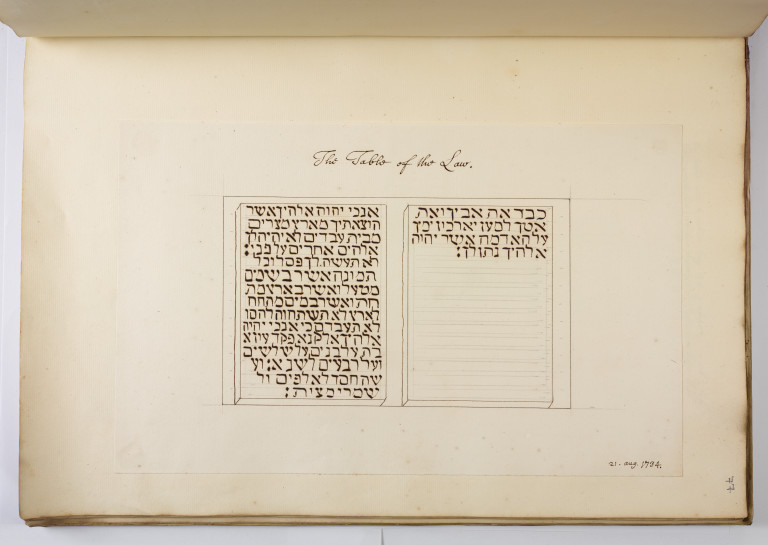 The Table of the Law.
אנכי יהוה אלהיך אשר
הוצאתיך מארץ מצרים
מבית עבדים לא יהיה לך
אלהים אחרים על פני:
לא תעשה לך פסל וכל
תמונה אשר בשמים
מטעל ואשר בארץ מת
חת ואשר במים מתחת
לארץ לא תשתחוה להם ו
לא תעבדם כי אנכי יהוה
אלהיך אל קנא פקד עון א
בת על בנים על שלשים
ועל רבעים לשנא: וע
שה חסד לאלפים ול
ישמרי מצותי:
כבד את אביך ואת
אמך למען יארכון ימך
על האדמה אשר יהוה
אלהיך נתן לך:
21. aug. 1794.